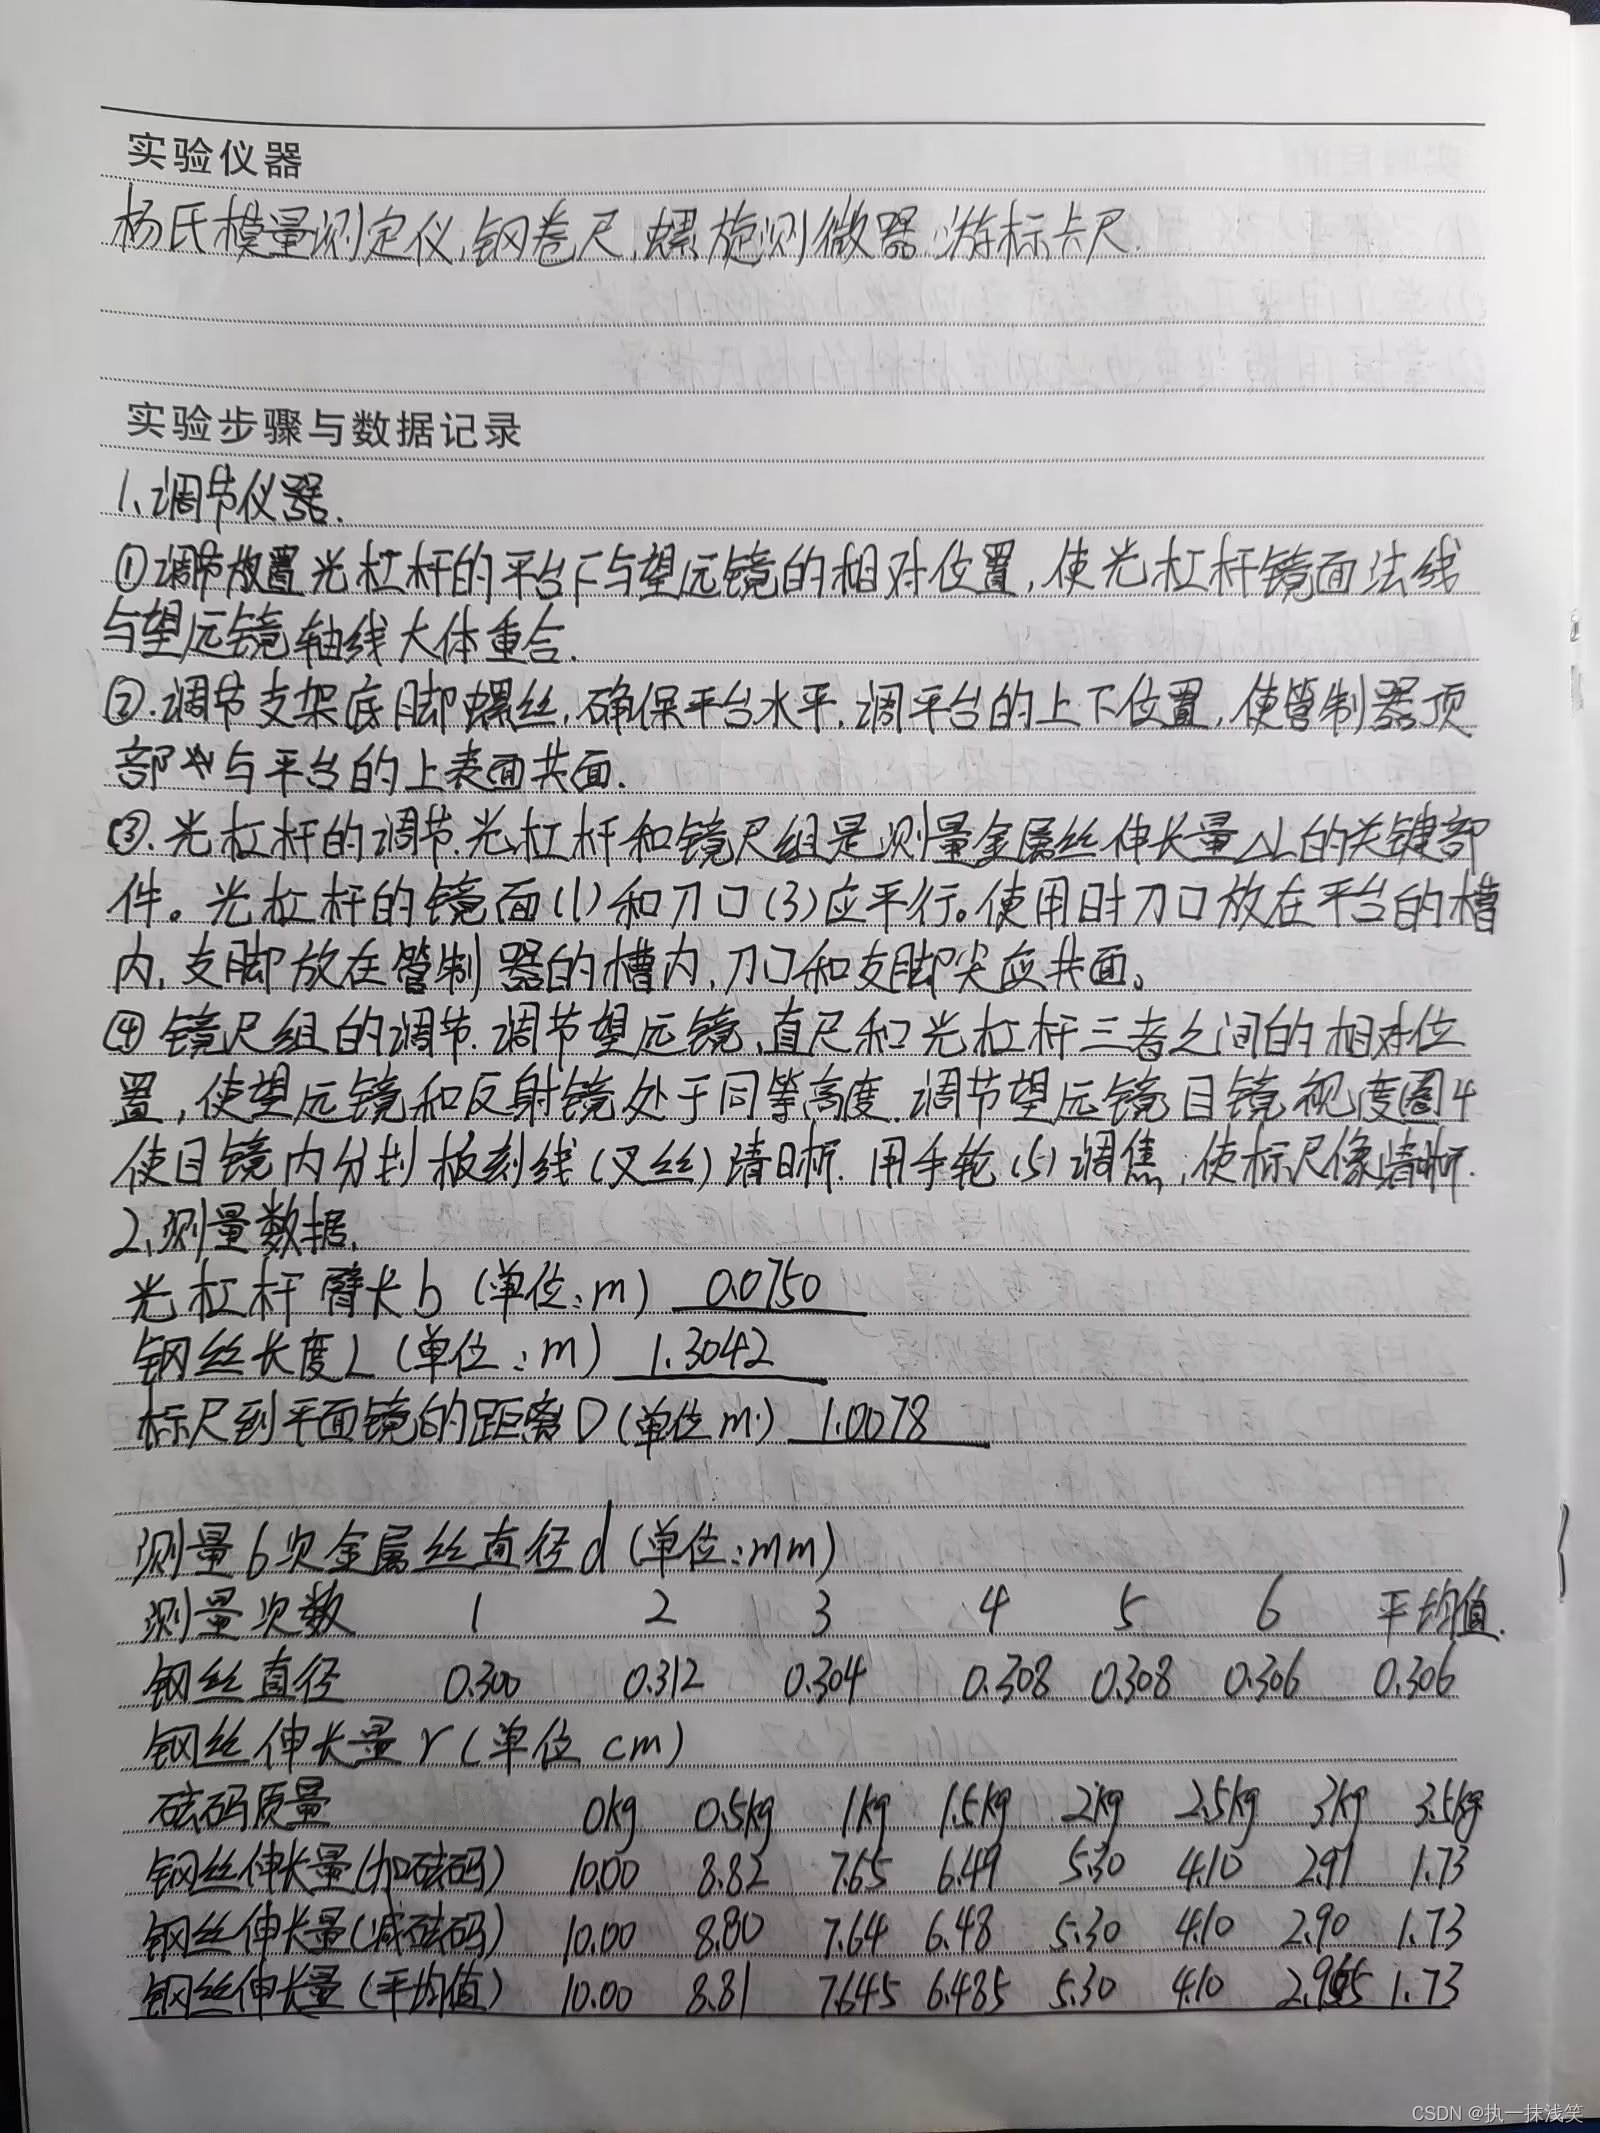 实验仪器
杨氏模量测定仪,钢卷尺,螺旋测微器,游标卡尺.
实验步骤与数据记录
1、调节仪器.
①调节放置光杠杆的平台F与望远镜的相对位置,使光杠杆镜面法线
与望远镜轴线大体重合.
②.调节支架底脚螺丝,确保平台水平,调平台的上下位置,使管制器顶
部与平台的上表面共面.
③.光杠杆的调节.光杠杆和镜尺组是测量金属丝伸长量△L的关键部
件。光杠杆的镜面(1)和刀口(3)应平行。使用时刀口放在平台的槽
内,支脚放在管制器的槽内,刀口和支脚尖应共面。
④镜尺组的调节.调节望远镜、直尺和光杠杆三者之间的相对位
置,使望远镜和反射镜处于同等高度.调节望远镜目镜视度圈4
使目镜内分划板刻线(叉丝)清晰.用手轮(5)调焦,使标尺像清晰.
2、测量数据.
光杠杆臂长b(单位:m) 0.0750
钢丝长度L(单位:m) 1.3042
标尺到平面镜的距离D(单位m) 1.0078
测量6次金属丝直径d(单位:mm)
测量次数 1 2 3 4 5 6 平均值.
钢丝直径 0.300 0.312 0.304 0.308 0.308 0.306 0.306
钢丝伸长量r(单位 cm)
砝码质量 0kg 0.5kg 1kg 1.5kg 2kg 2.5kg 3kg 3.5kg
钢丝伸长量(加砝码) 10.00 8.82 7.65 6.49 5.30 4.10 2.91 1.73
钢丝伸长量(减砝码) 10.00 8.80 7.64 6.48 5.30 4.10 2.90 1.73
钢丝伸长量(平均值) 10.00 8.81 7.645 6.485 5.30 4.10 1.73
CSDN @执一抹浅笑